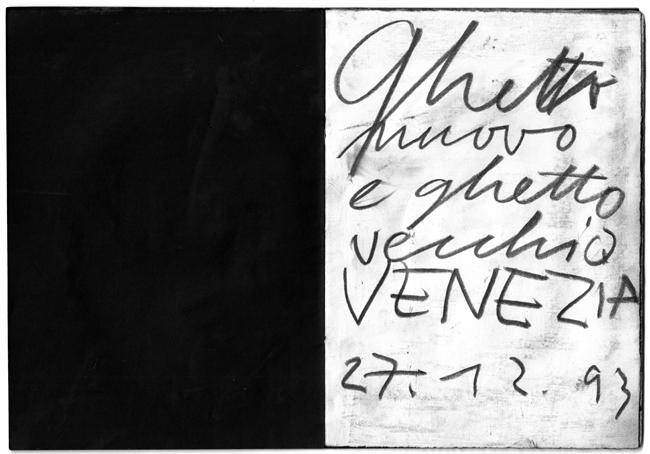 Ghetto
nuovo
e ghetto
vecchio
VENEZIA
27.12.93